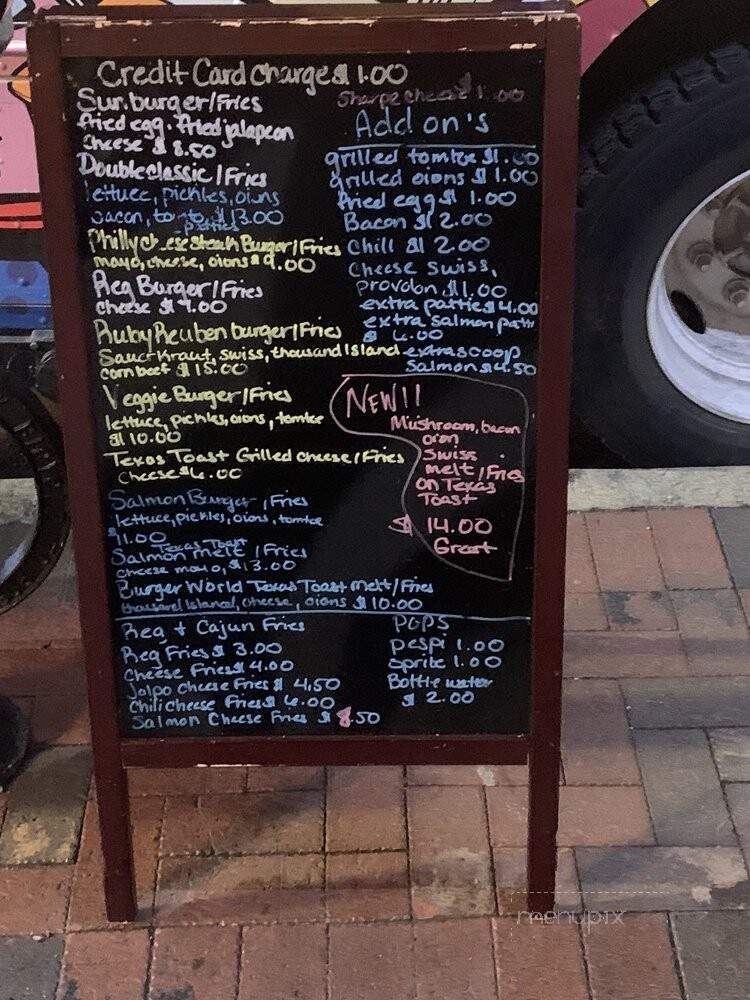 Credit Card Charge $1.00
Sun.burger/Fries
fried egg, fried jalapeon
cheese $8.50
Doubleclassic/Fries
lettuce, pickles, oions
bacon, $13.00
patties
Philly cheesesteak Burger/Fries
mayo, cheese, oions $9.00
Reg Burger/Fries
cheese $7.00
Ruby Reuben burger/Fries
Saurkraut, swiss, thousand Island
corn beef $15.00
Veggie Burger/Fries
lettuce, pickles, oions, tomtoe
$10.00
Texas Toast Grilled cheese/Fries
cheese $6.00
Salmon Burger, Fries
lettuce, pickles, oions, tomtoe
$11.00
Texas Toast
Salmon melt/Fries
cheese mayo, $13.00
Burger World Texas Toast melt/Fries
thousand island, cheese, oions $10.00
Sharpe cheese 1.00
Add on's
grilled tomtoe $1.00
grilled oions $1.00
fried egg $1.00
Bacon $2.00
Chill $2.00
Cheese Swiss,
provolon $1.00
extra pattie $4.00
extra salmon pattie
$6.00
extra scoop
Salmon $4.50
NEW!!
Mushroom, bacon
oion
Swiss
melt/Fries
on Texas
Toast
$14.00
Great
Reg + Cajun Fries
Reg Fries $3.00
Cheese Fries $4.00
Jalpo Cheese Fries $4.50
Chili Cheese Fries $6.00
Salmon Cheese Fries $8.50
POPS
pespi 1.00
sprite 1.00
Bottle water
$2.00
menupix